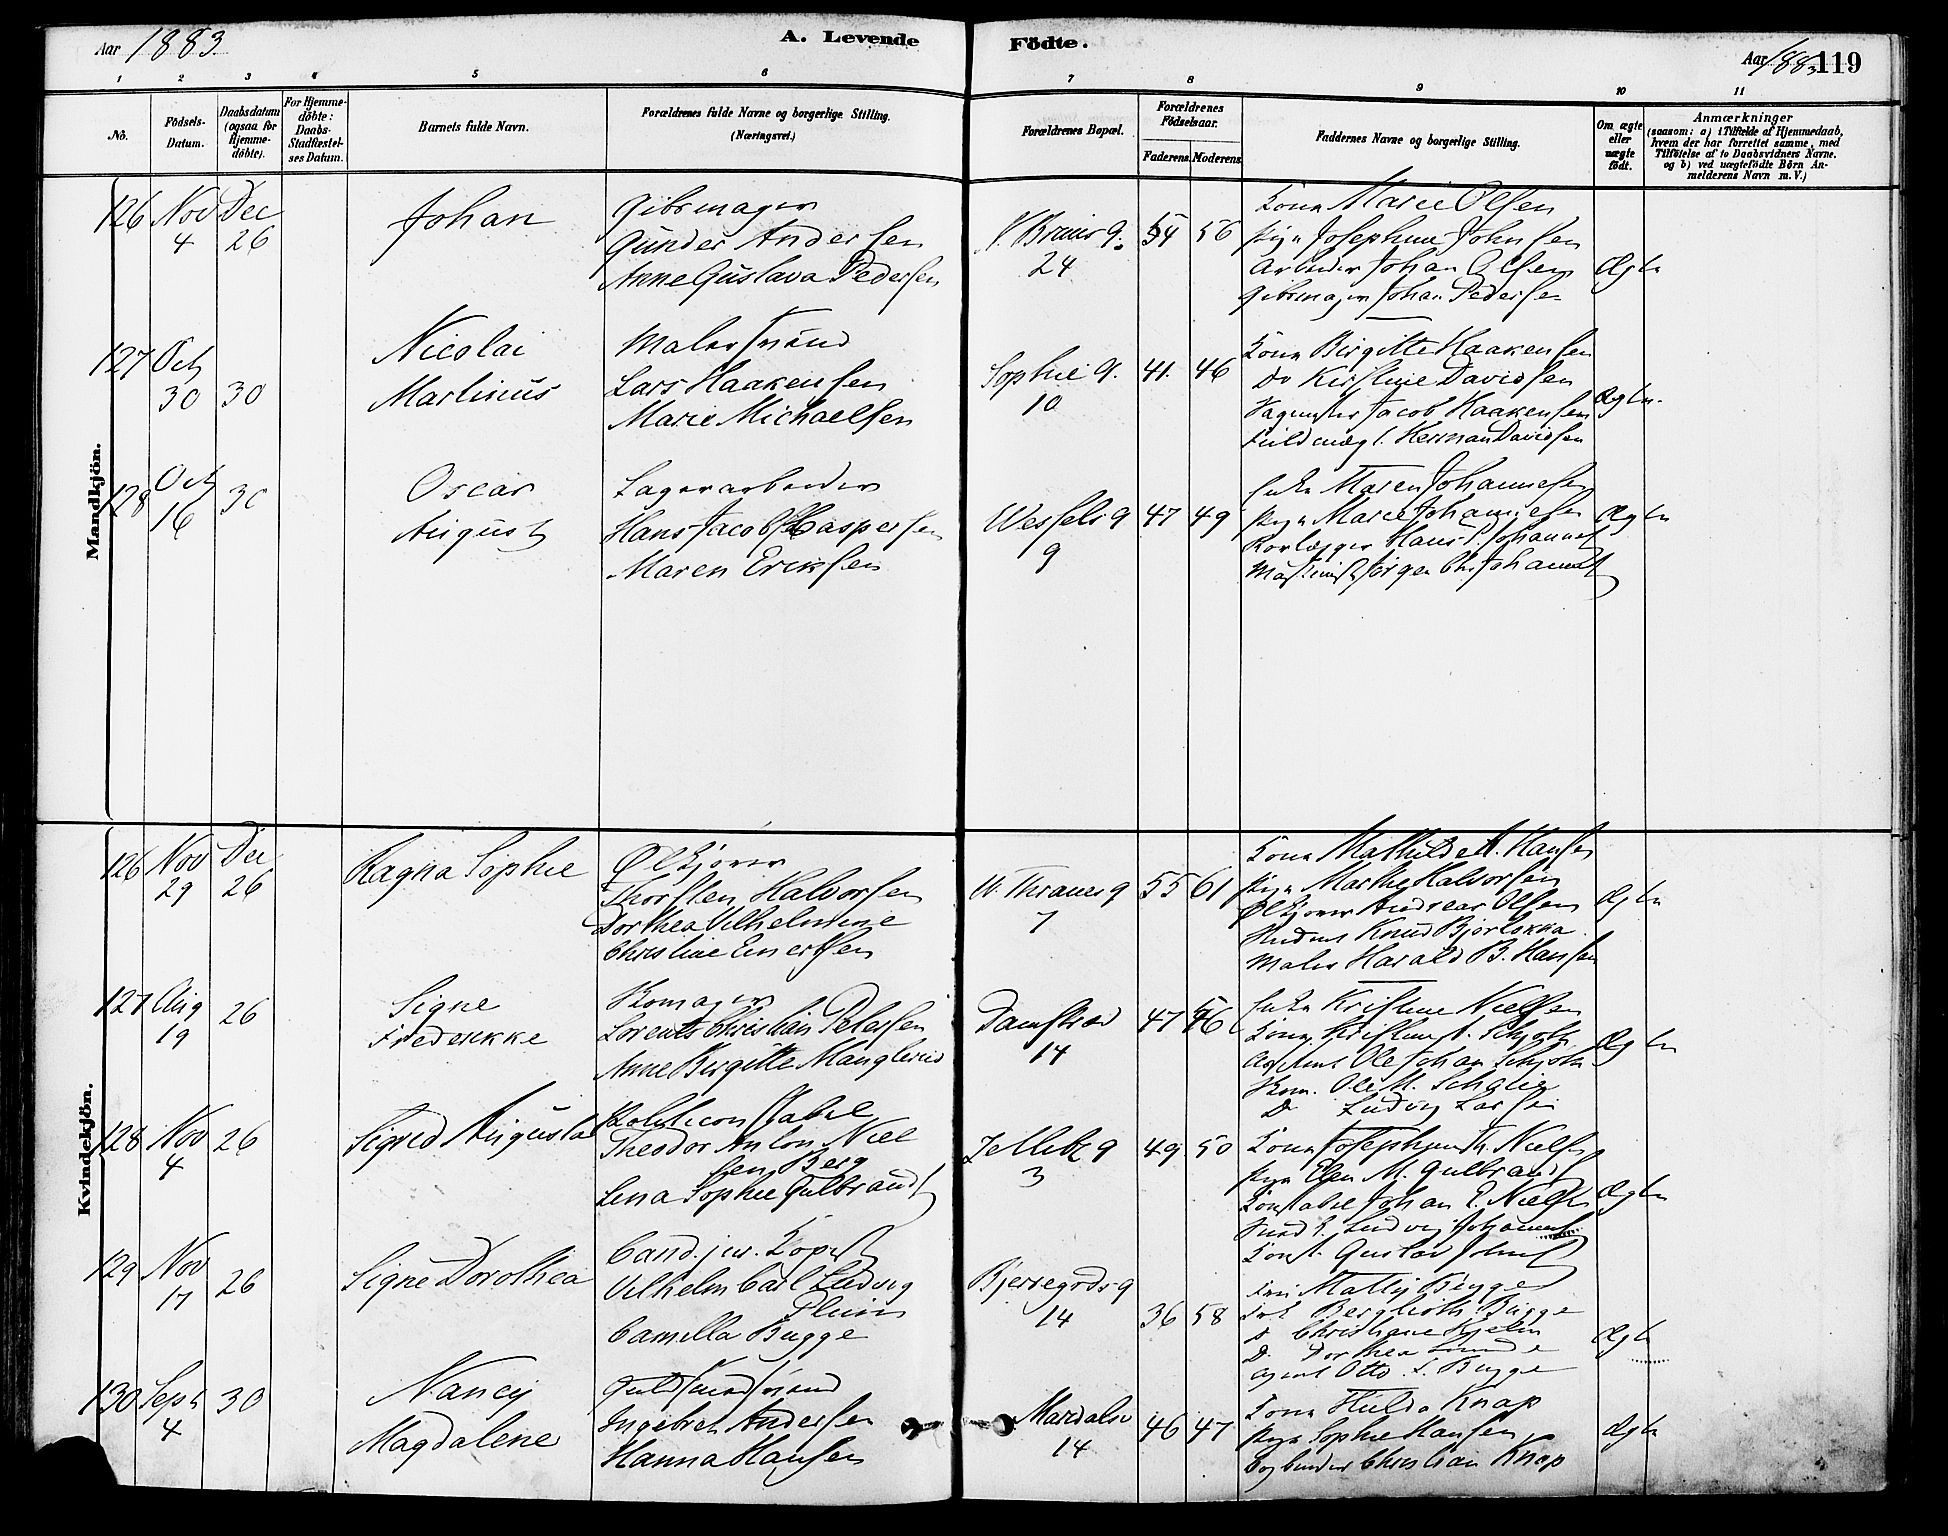 Aar 1883.
A. Levende
Födte.
Aar 1883
119
1 2 3 4 5 6 7 8 9 10 11
No.
Födsels-Datum.
Daabsdatum (ogsaa for Hjemme-döbte).
For Hjemme-döbte: Daabs-Stadfæstel-ses Datum.
Barnets fulde Navn.
Forældrenes fulde Navne og borgerlige Stilling. (Næringsvei.)
Forældrenes Bopæl.
Forældrenes Födselsaar.
Faderens. Moderens.
Faddernes Navne og borgerlige Stilling.
Om ægte eller uægte födt.
Anmærkninger
(saasom: a) i Tilfælde af Hjemmedaab,
hvem der har forrettet samme, med
Tilföielse af to Daabsvidners Navne.
og b) ved uægtefödte Börn An-
melderens Navn m. V.)
Mandkjön.
126 Nov 4 Dec 26
Johan
Gibsmager
Gunder Andersen
Anne Gustava Pedersen
24
54 56
Kone Marie Olsen
Pige Josephine Johnsen
Arbeider Johan Olsen
Gibsmager Johan Pedersen
Ægte
127 Oct 30 30
Nicolai
Martinius
Malersvend
Lars Haakensen
Marie Michaelsen
Sophie g.
10
41. 46
Kone Birgitte Haakensen
Do Kirstine Davidsen
Jacob Haakensen
Fuldmægt. Herman Davidsen
Ægte.
128 Oct 16 30
Oscar
August
Lagerarbeider
Hans Jacob Caspersen
Maren Eriksen
Wessels g
9
47 49
Enke Maren Johannesen
Pige Marie Johannesen
Rørlægger Hans P. Johannes
Maskinist Jörgen Chr Johannes
Ægte
Kvindekjön.
126 Nov 29 Dec 26
Ragna Sophie
Ølkjører
Thorsten Halvorsen
Dorthea Vilhelmine
Christine Enertsen
W. Thranes g
7
55 61
Kone Mathilde A. Hansen
Pige Marthe Halvorsen
Ølkjører Andreas Olsen
Student Knud Bjorlokka
Maler Harald B. Hansen
Ægte
127 Aug 19 26
Signe
Frederikke
Skomager
Lorents Christian Petersen
Anne Birgitte Manglerud
Damstræd
14
47 46
Enke Kristine Nielsen
Kone Kristine A. Schjøth
Ole Johan Schjøth
Skom. Ole M. Schalin
Do Ludvig Larsen
Ægte
128 Nov 4 26
Sigrid Augusta
Politiconstabel
Theodor Anton Niel
sen Berg
Lena Sophie Gulbrands
3
49 50
Kone Josephine Th. Nielsen
Pige Elen M. Gulbrands
Konstabel Johan E. Nielsen
Ludvig Johannes
Konst. Gustav Johns
Ægte
129 Nov 17 26
Signe Dorothea
Cand. jur. Kopist
Vilhelm Carl Ludvig
Pleim
Camella Bugge
Bjerregards g
14
36 58
Fru Mally Bugge
Frk Berglioth Bugge
D. Christiane Kjelin
D. Dorthea Lunde
Agent Otto S. Bugge
Ægte
130 Sept 4 30
Nancy
Magdalene
Guldsmedsvend
Ingebret Andersen
Hanna Hansen
Maridalsv
14
46 47
Kone Hulda Knap
Pige Sophie Hansen
Bogbinder Christian Knap
Ægte